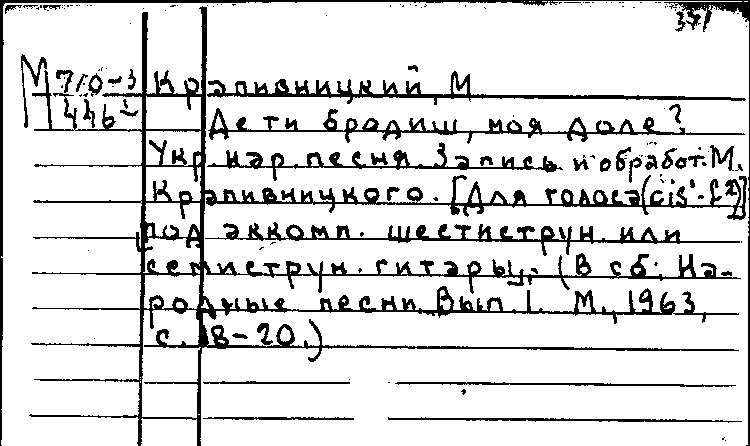 371
М 710-3 Крапивницкий, М
446 Де ти бродиш, моя доле?
Укр. нар. песня. Запись и обработ. М.
Крапивницкого. [Для голоса (cis¹-f²)]
под аккомп. шестиструн. или
семиструн. гитары. (В сб: На-
родные песни. Вып. 1. М., 1963,
с. 18-20.)